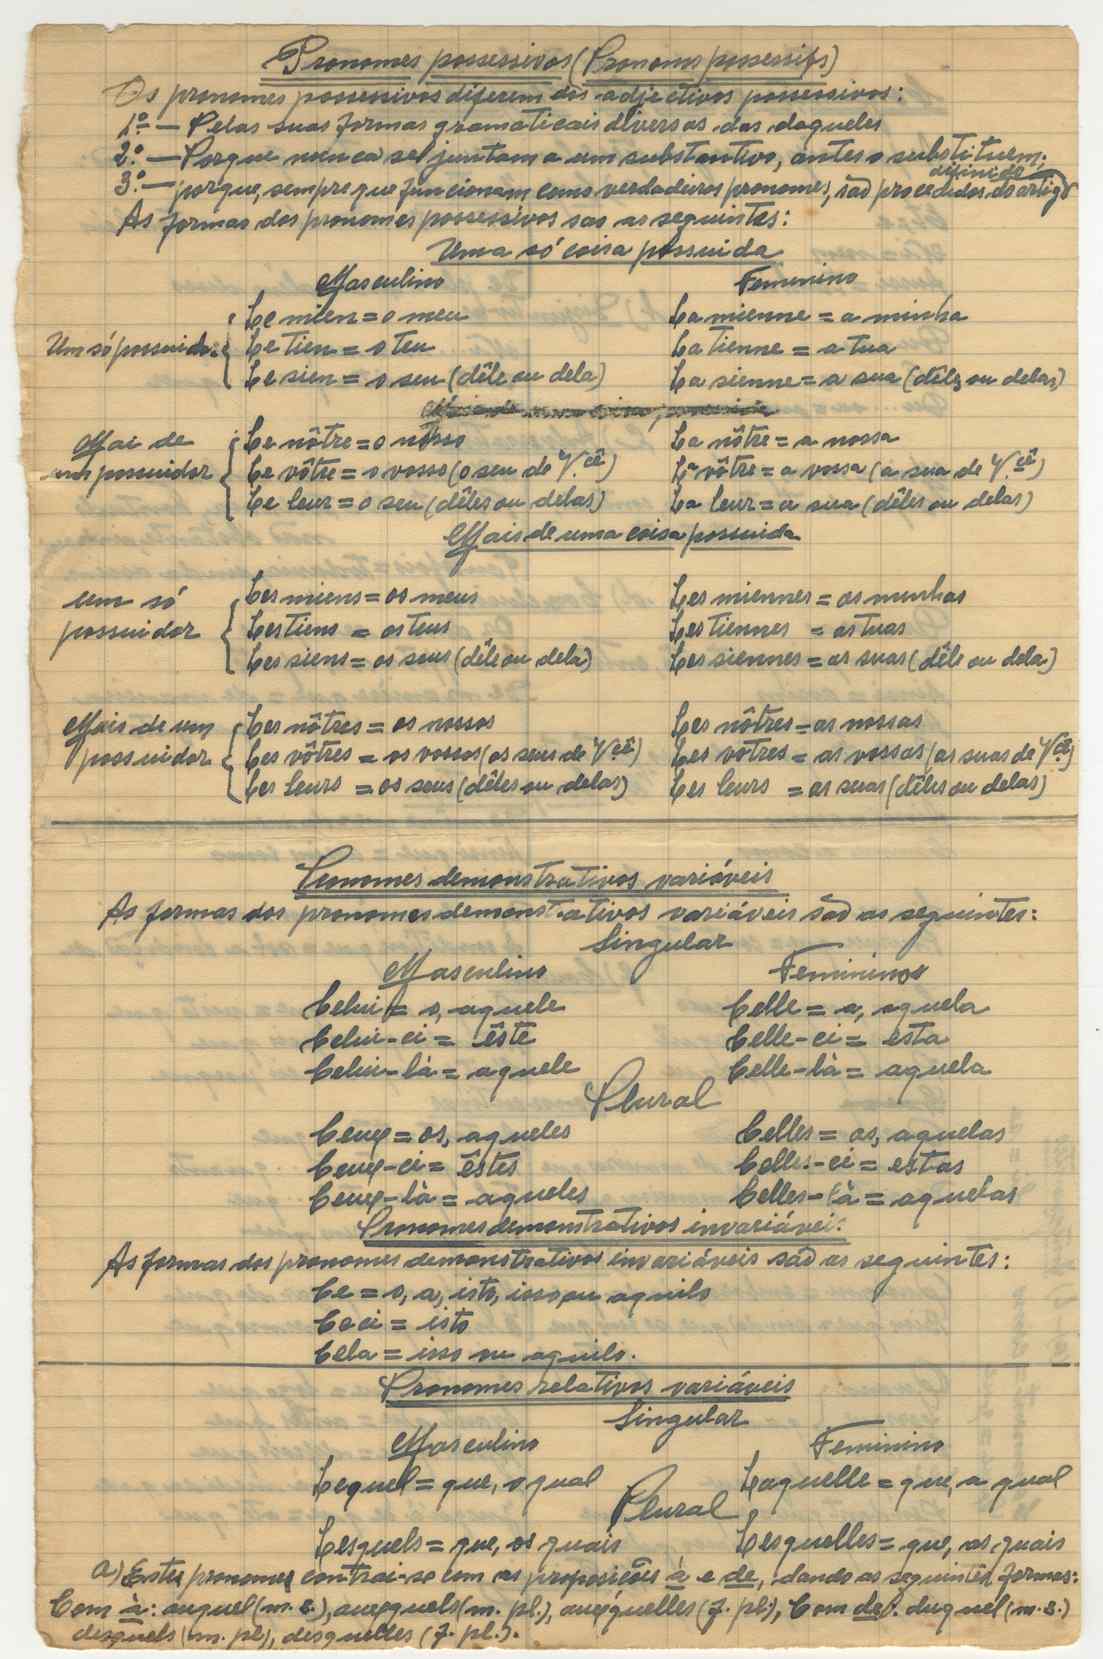 Pronomes possessivos (Pronoms possessifs)
Os pronomes possessivos diferem dos adjectivos possessivos:
1.º — Pelas suas formas gramaticais diversas das daqueles
2.º — Porque nunca se juntam a um substantivo, antes o substituem;
definido
3.º — porque, sempre que funcionam como verdadeiros pronomes, são precedidos do artigo
As formas dos pronomes possessivos são as seguintes:
Uma só coisa possuida
Masculino Feminino
Le mien = o meu La mienne = a minha
Um só possuidor { Le tien = o teu La tienne = a tua
Le sien = o seu (dêle ou dela) La sienne = a sua (dêles ou delas)
Mais de uma coisa possuida
Mais de Le nôtre = o nosso La nôtre = a nossa
um possuidor { Le vôtre = o vosso (o seu de V.cê) La vôtre = a vossa (a sua de V.cê)
Le leur = o seu (dêles ou delas) La leur = a sua (dêles ou delas)
Mais de uma coisa possuida
um só Les miens = os meus Les miennes = as minhas
possuidor { Les tiens = os teus Les tiennes = as tuas
Les siens = os seus (dêle ou dela) Les siennes = as suas (dêle ou dela)
Mais de um Les nôtres = os nossos Les nôtres = as nossas
possuidor { Les vôtres = os vossos (os seus de V.cê) Les vôtres = as vossas (as suas de V.cê)
Les leurs = os seus (dêles ou delas) Les leurs = as suas (dêles ou delas)
Pronomes demonstrativos variáveis
As formas dos pronomes demonstrativos variáveis são as seguintes:
Singular
Masculino Feminino
Celui = o, aquele Celle = a, aquela
Celui-ci = êste Celle-ci = esta
Celui-là = aquele Celle-là = aquela
Plural
Ceux = os, aqueles Celles = as, aquelas
Ceux-ci = êstes Celles-ci = estas
Ceux-là = aqueles Celles-là = aquelas
Pronomes demonstrativos invariáveis
As formas dos pronomes demonstrativos invariáveis são as seguintes:
Ce = o, a, isto, isso ou aquilo
Ceci = isto
Cela = isso ou aquilo.
Pronomes relativos variáveis
Singular
Masculino Feminino
Lequel = que, o qual Laquelle = que, a qual
Plural
Lesquels = que, os quais Lesquelles = que, as quais
a) Estes pronomes contrai-se com as preposições à e de, dando as seguintes formas:
Com à: auquel (m. s.), auxquels (m. pl.), auxquelles (f. pl.), Com de: duquel (m. s.)
desquels (m. pl), desquelles (f. pl.).